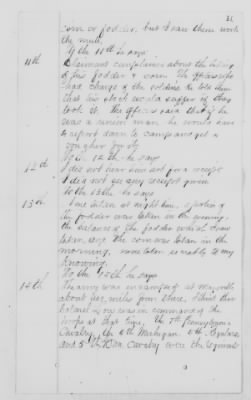 31
corn or fodder, but I saw them work
the mule.
To the 11th he says
11th Claimant complained about the taking
of his fodder & corn. The officer who
had charge of the soldiers. He told them
that his stock would suffer if they
took it. The officer said that if he
was a union man he would have
to report down to camp and get a
voucher for it.
To the 12th he says
12th I did not hear him ask for a receipt
I did not see any receipt given
To the 13th he says
13th Some taken at night time, a portion of
the fodder was taken in the evening,
the balance of the fodder which I saw
taken, and the corn was taken in the
morning, none taken secretly to my
knowing.
To the 14th he says
14th The army was encamped at
about miles from there, I think this
in command of the
troops at that time. The 7th Pennsylvania
Cavalry, the 4th Michigan
and 5th Cavalry were the regiments